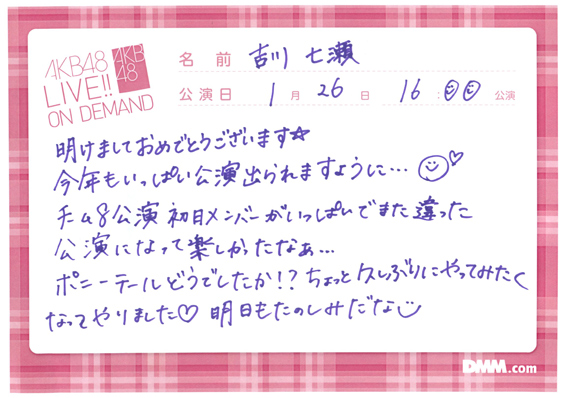 AKB48
LIVE!!
ON DEMAND
AKB
48
名前 吉川 七瀬
公演日 1月26日 16:00公演
明けましておめでとうございます☆
今年もいっぱい公演出られますように…
チーム8公演 初日メンバーがいっぱいでまた違った
公演になって楽しかったなぁ…
ポニーテールどうでしたか!?ちょっと久しぶりにやってみたく
なってやりました♡ 明日もたのしみだな
DMM.com